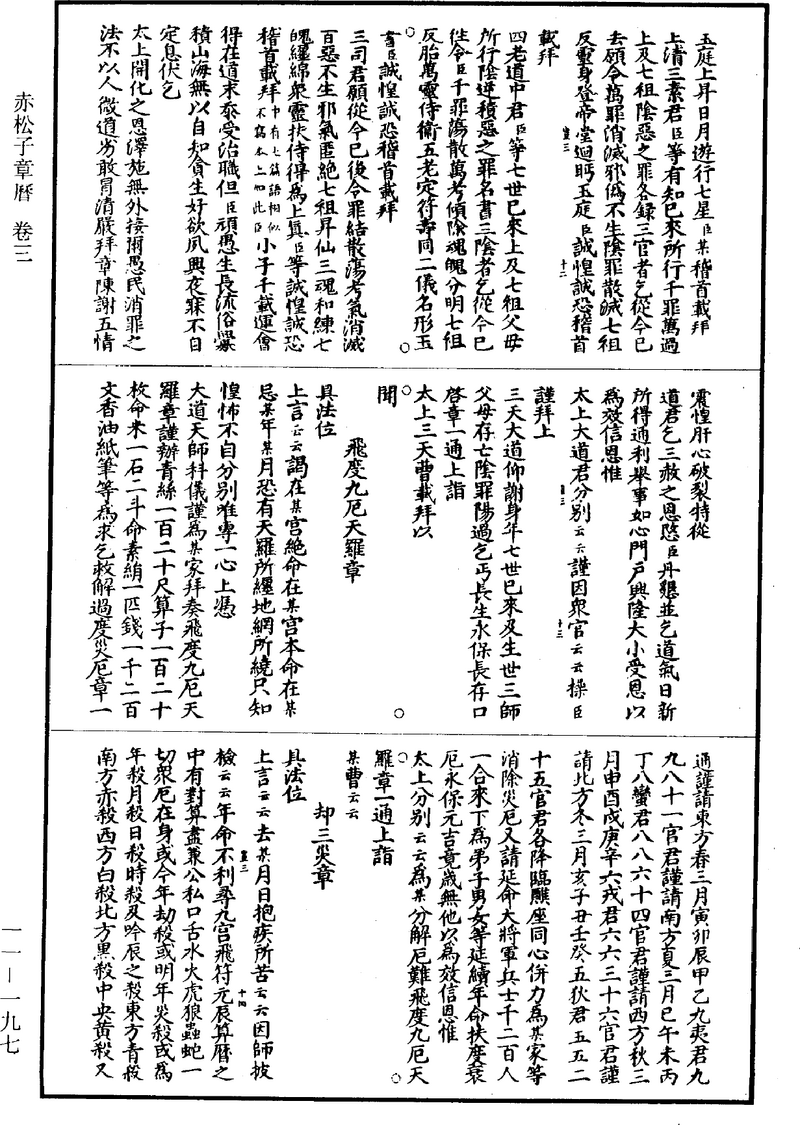 赤松子章曆　卷三
玉庭上昇日月遊行七星臣某稽首載拜
上清三素君臣等有知已來所行千罪萬過
上及七祖陰惡之罪各錄三官者乞從今已
去願令萬罪消滅邪僞不生陰罪散滅七祖
反靈身登帝堂迴眄玉庭臣誠惶誠恐稽首
載拜
四老道中君臣等七世已來上及七祖父母
所行陰逆積惡之罪名書三陰者乞從今已
徃令臣千罪蕩散萬考傾除魂魄分明七祖
反胎萬靈侍衛五老定符壽同二儀名形玉
書臣誠惶誠恐稽首載拜
三司君願從今已後令罪結散蕩考氣消滅
百惡不生邪氣匿絶七祖昇仙三魂和練七
魄纏綿衆靈扶侍得爲上眞臣等誠惶誠恐
稽首載拜中有七篇語相似不寫本上如此臣小子千載運會
得在道末忝受治職但臣頑愚生長流俗釁
積山海無以自知貪生好欲夙興夜寐不自
定息伏乞
太上開化之恩澤施無外接爾愚民消罪之
法不以人微道劣敢冒清嚴拜章陳謝五情
震惶肝心破裂特從
道君乞三赦之恩愍臣丹懇並乞道氣日新
所得通利舉事如心門戶興隆大小受恩以
爲效信恩惟
太上大道君分別云云謹因衆官云云操臣
謹拜上
三天大道仰謝身年七世已來及生世三師
父母存亡陰罪陽過乞丐長生永保長存口
啓章一通上詣
太上三天曹載拜以
聞
飛度九厄天羅章
具法位
上言云云謁在某宮絶命在某宮本命在某
忌某年某月恐有天羅所纏地網所繞只知
惶怖不自分別唯專一心上憑
大道天師科儀謹爲某家拜奏飛度九厄天
羅章謹辦青絲一百二十尺算子一百二十
枚命米一石二斗命素絹一匹錢一千二百
文香油紙筆等爲求乞救解過度災厄章一
通謹請東方春三月寅卯辰甲乙九夷君九
九八十一官君謹請南方夏三月巳午未丙
丁八蠻君八八六十四官君謹請西方秋三
月申酉戌庚辛六戎君六六三十六官君謹
請北方冬三月亥子丑壬癸五狄君五五二
十五官君各降臨醮座同心併力爲某家等
消除災厄又請延命大將軍兵士千二百人
一合來下爲弟子男女等延續年命扶度衰
厄永保元吉竟歲無他以爲效信恩惟
太上分別云云爲某分解厄難飛度九厄天
羅章一通上詣
某曹云云
却三災章
具法位
上言云云去某月日抱疾所苦云云因師披
檢云云年命不利尋九宮飛符元辰算曆之
中有對算盡兼公私口舌水火虎狼蟲蛇一
切衆厄在身或今年劫殺或明年災殺或爲
年殺月殺日殺時殺及吟辰之殺東方青殺
南方赤殺西方白殺北方黑殺中央黃殺又
一一—一九七